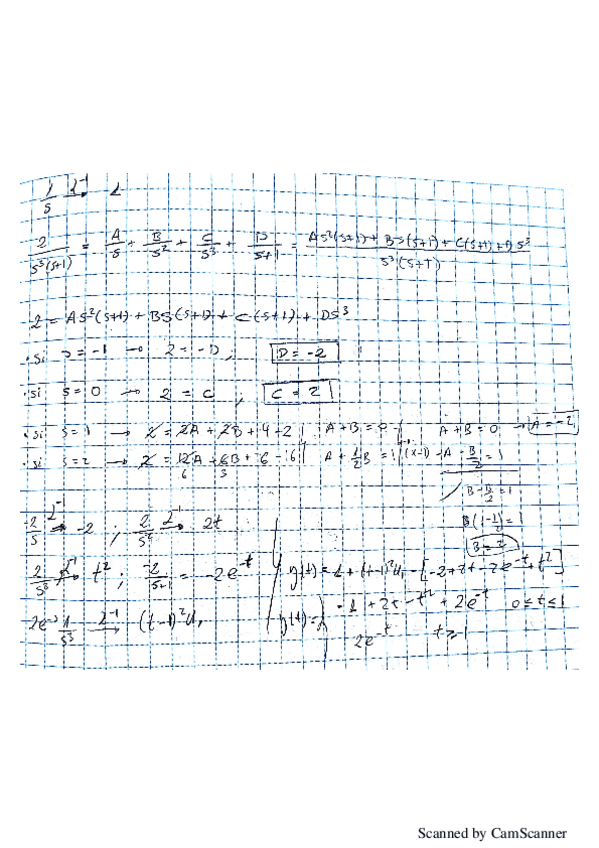 1/s L⁻¹→ 1
2/(s³(s+1)) = A/s + B/s² + C/s³ + D/(s+1) = (As²(s+1) + Bs(s+1) + C(s+1) + Ds³)/(s³(s+1))
2 = As²(s+1) + Bs(s+1) + C(s+1) + Ds³
· si s = -1 → 2 = -D, D = -2
· si s = 0 → 2 = C, C = 2
· si s = 1 → 2 = 2A + 2B + 4 - 2 | A + B = 0 → A + B = 0 → A = -2
· si s = 2 → 2 = 12A + 6B + 6 - 16 | A + 1/2 B = 1 | (x-1) -A - B/2 = 1
B - B/2 = 1
2/s L⁻¹→ -2 ; 2/s² L⁻¹→ 2t
B(1 - 1/2) = 1
B = 2
2/s³ L⁻¹→ t² ; -2/(s+1) = -2e⁻ᵗ
y(t) = 1 + (t-1)²u₁ - [-2 + 2t - 2e⁻ᵗ + t²]
2e⁻ˢ 1/s³ L⁻¹→ (t-1)²u₁
y(t) = { -1 + 2t - t² + 2e⁻ᵗ 0 ≤ t ≤ 1
2e⁻ᵗ
Scanned by CamScanner